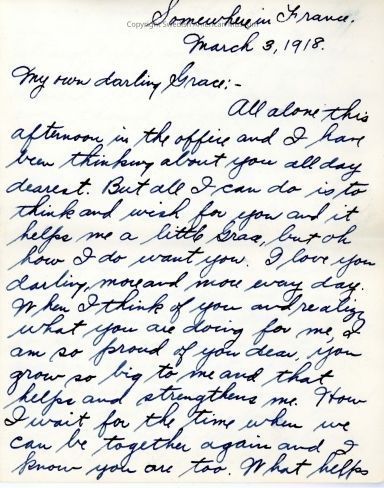 Somewhere in France.
March 3, 1918.
My own darling Grace;-
All alone this
afternoon in the office and I have
been thinking about you all day
dearest. But all I can do is to
think and wish for you and it
helps me a little Grace, but oh
how I do want you. I love you
darling, more and more every day.
When I think of you and realize
what you are doing for me, I
am so proud of you dear, you
grow so big to me and that
helps and strengthens me. How
I wait for the time when we
can be together again and I
know you are too. What helps